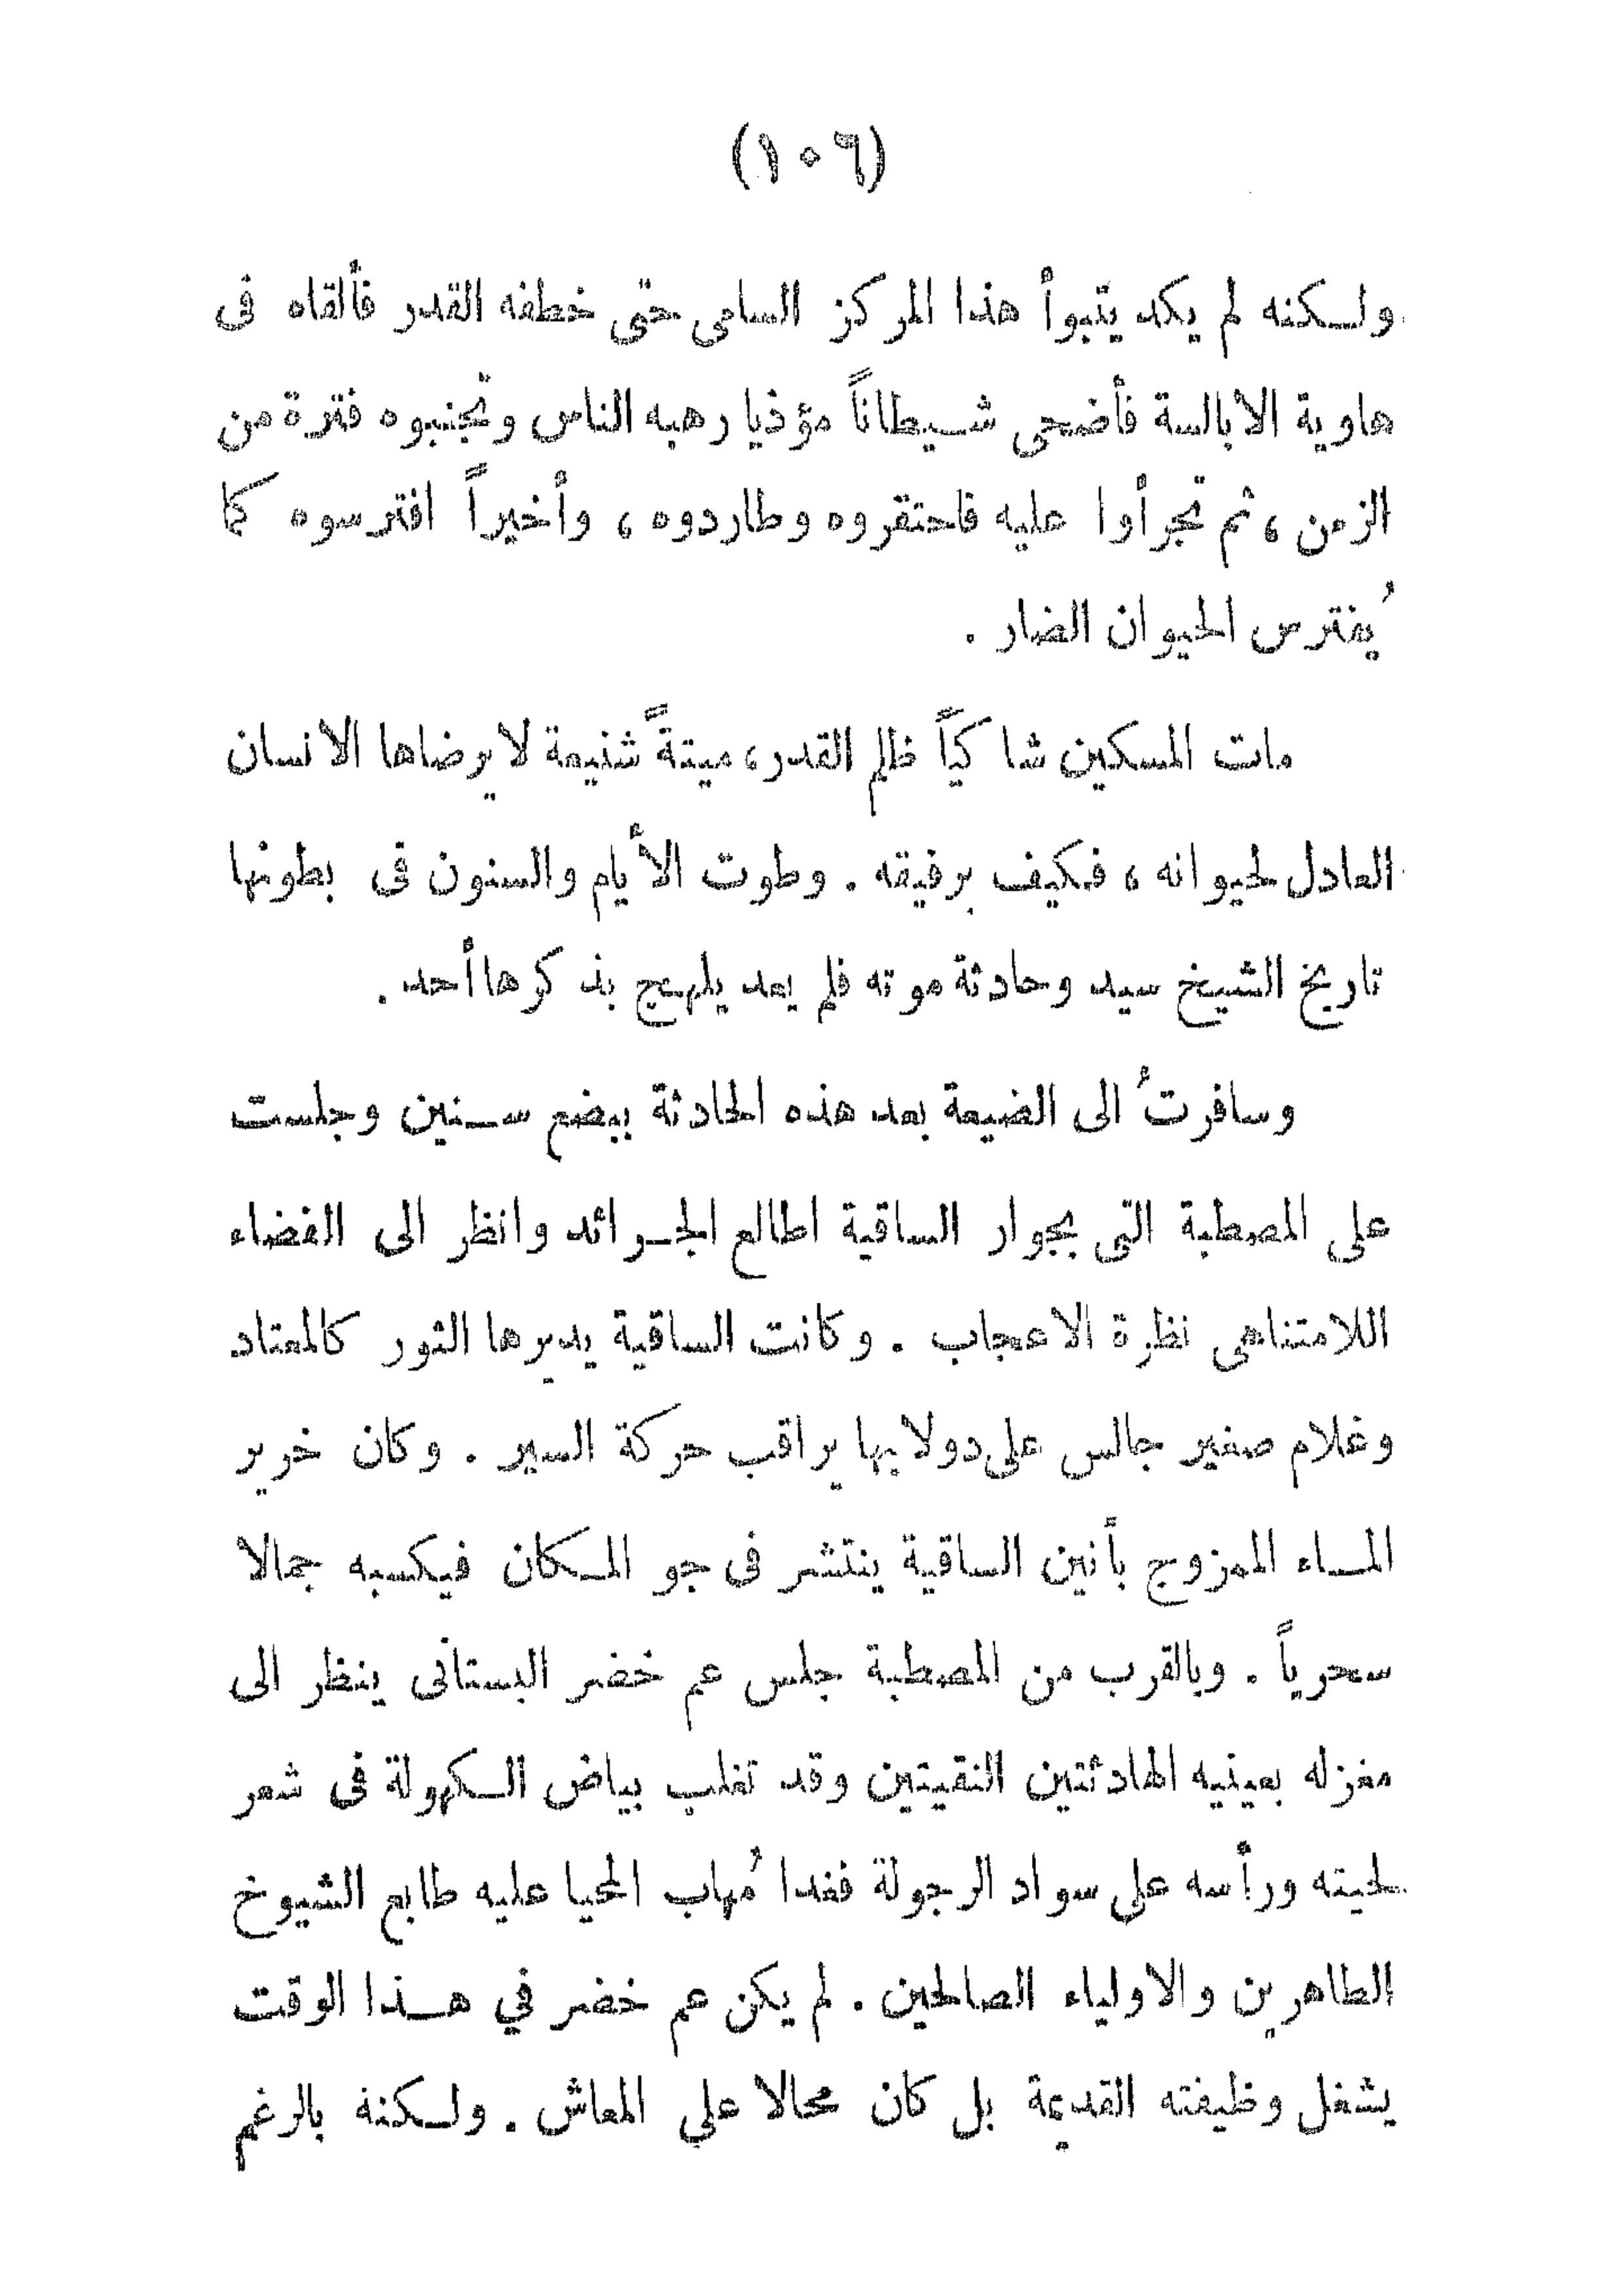 (١٠٦)
ولكنه لم يكد يتبوأ هذا المركز السامى حتى خطفه القدر فألقاه فى
هاوية الابالسة فأضحى شيطاناً مؤذيا رهبه الناس وتجنبوه فترة من
الزمن ، ثم تجرأوا عليه فاحتقروه وطاردوه ، وأخيراً افترسوه كما
يُفترس الحيوان الضار .
مات المسكين شاكياً ظلم القدر ، ميتةً شنيعة لا يرضاها الانسان
العادل لحيوانه ، فكيف برفيقه . وطوت الأيام والسنون فى بطونها
تاريخ الشيخ سيد وحادثة موته فلم يعد يلهج بذكرها أحد .
وسافرتُ الى الضيعة بعد هذه الحادثة ببضع سنين وجلست
على المصطبة التى بجوار الساقية اطالع الجرائد وانظر الى الفضاء
اللامتناهى نظرة الاعجاب . وكانت الساقية يديرها الثور كالمعتاد
وغلام صغير جالس على دولابها يراقب حركة السير . وكان خرير
الماء الممزوج بأنين الساقية ينتشر فى جو المكان فيكسبه جمالا
سحرياً . وبالقرب من المصطبة جلس عم خضر البستانى ينظر الى
مغزله بعينيه الهادئتين النقيتين وقد تغلب بياض الكهولة فى شعر
لحيته ورأسه على سواد الرجولة فغدا مُهاب المحيا عليه طابع الشيوخ
الطاهرين والاولياء الصالحين . لم يكن عم خضر في هذا الوقت
يشغل وظيفته القديمة بل كان محالا علي المعاش . ولكنة بالرغم